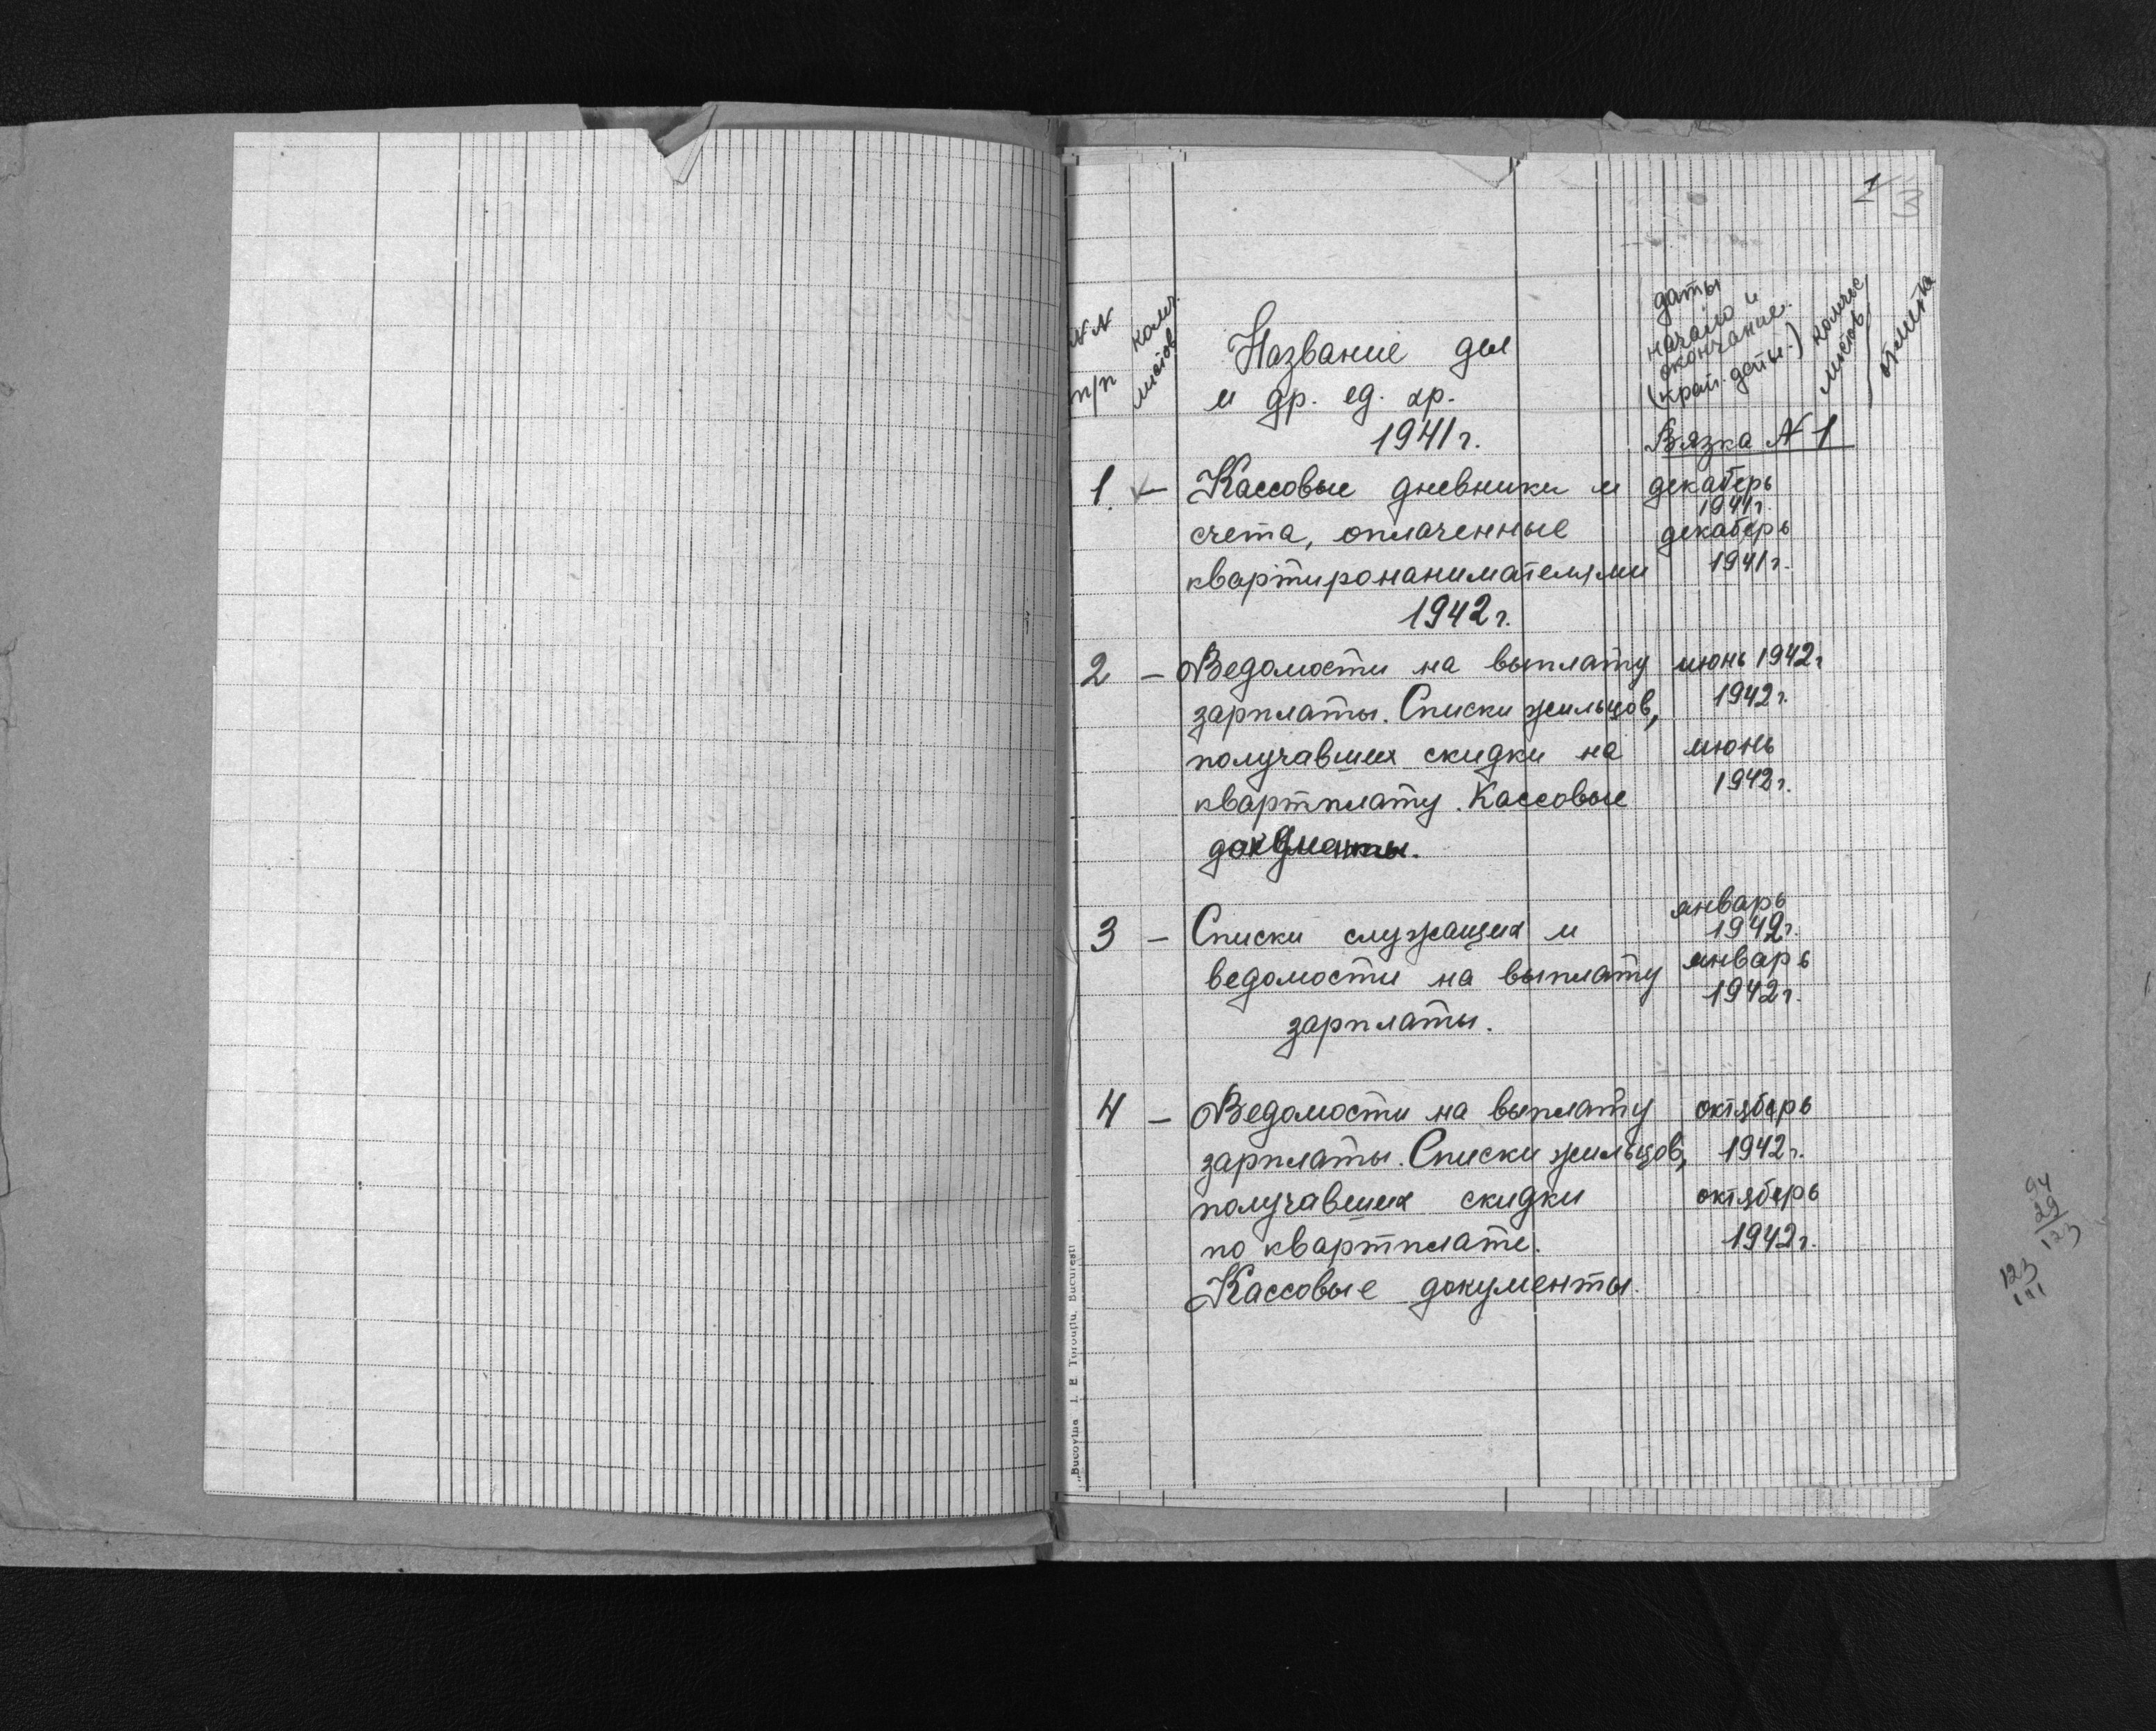 1
3
№№
п/п
колич.
листов
Название дел
и др. ед. хр.
даты
начало и
окончание.
(край. даты.)
количес
листов
отметка
1941 г.
Вязка № 1
1. — Кассовые дневники и декабрь
1941 г.
счета, оплаченные декабрь
квартиронанимателями 1941 г.
1942 г.
2 — Ведомости на выплату июнь 1942 г
зарплаты. Списки жильцов, 1942 г.
получавших скидки на июнь
квартплату. Кассовые 1942 г.
документы.
январь
3 — Списки служащих и 1942 г.
ведомости на выплату январь
1942 г.
зарплаты.
4 — Ведомости на выплату октябрь
зарплаты. Списки жильцов, 1942 г.
получавших скидки октябрь
по квартплате. 1942 г.
Кассовые документы.
94
29
123
123
"Bucovina I. E. Torouțiu, Bucuresti